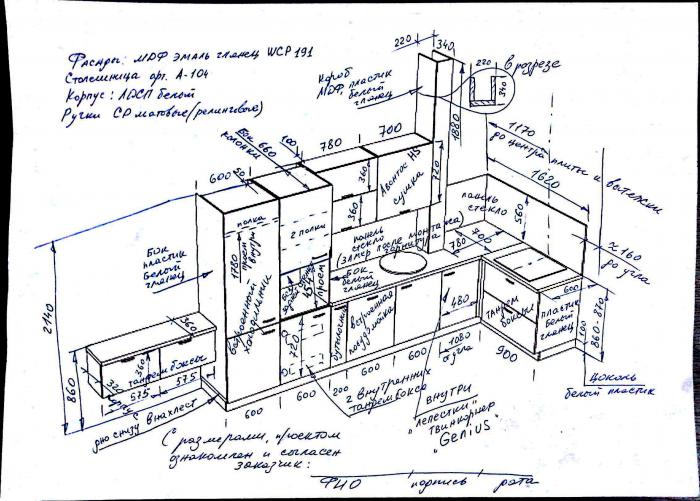 Фасады: МДФ эмаль глянец WCP 191
Столешница арт. А-104
Корпус: ЛДСП белый
Ручки СР матовые (релинговые)
220
340
Короб
МДФ, пластик
белый
глянец
220
340
в разрезе
1880
1170
до центра плиты и вытяжки
1620
Бок 660
колонки
100
780
700
600
20
360
360
Авентос HS
сушка
720
полка
2 полки
1780 проем
внутри
встроенный
холодильник
Бок
пластик
белый
глянец
2140
панель
стекло
(замер после монтажа
гарнитура)
780
700
панель
стекло
560
≈160
до угла
Бок
белый
глянец
проем
760
бутылочница
встроенная
посудомойка
480
тандем
боксы
600
пластик
белый
глянец
860-870
100
360
860
320
360
тандембоксы
575
575
дно снизу внахлест
600
600
600
600
1080
от угла
900
2 внутренних
тандембокса
внутри
"лепестки"
Твинкорнер
"Genius"
Цоколь
белый пластик
С размерами, проектом
ознакомлен и согласен
заказчик:
ФИО
подпись
дата